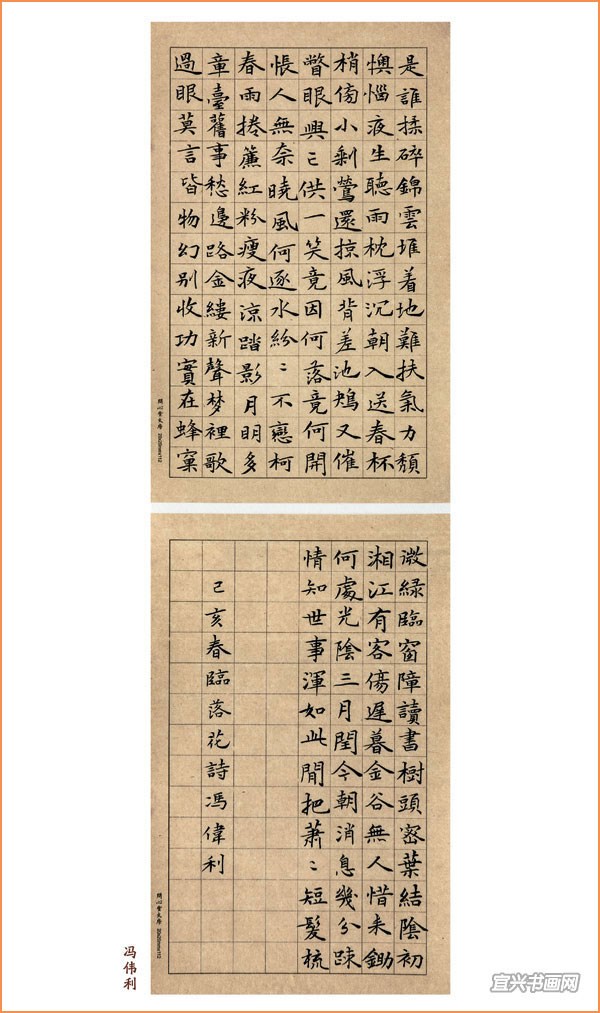 是誰揉碎錦雲堆着地難扶氣力頹
懊惱夜生聽雨枕浮沉朝入送春杯
梢傍小剩鶯還掠風背差池又催
瞥眼興亡供一笑竟因何落竟何開
悵人無奈曉風何逐水紛〻不戀柯
春雨捲簾紅粉瘦夜涼踏影月明多
章臺舊事愁邊路金縷新聲梦裡歌
過眼莫言皆物幻别收功實在蜂窠
微綠臨窗障讀書樹頭密葉結陰初
湘江有客傷遲暮金谷無人惜耒鋤
何處光陰三月閏今朝消息幾分踈
情知世事渾如此閒把蕭〻短髮梳
己亥春臨落花詩馮偉利
冯伟利
宜兴书画网